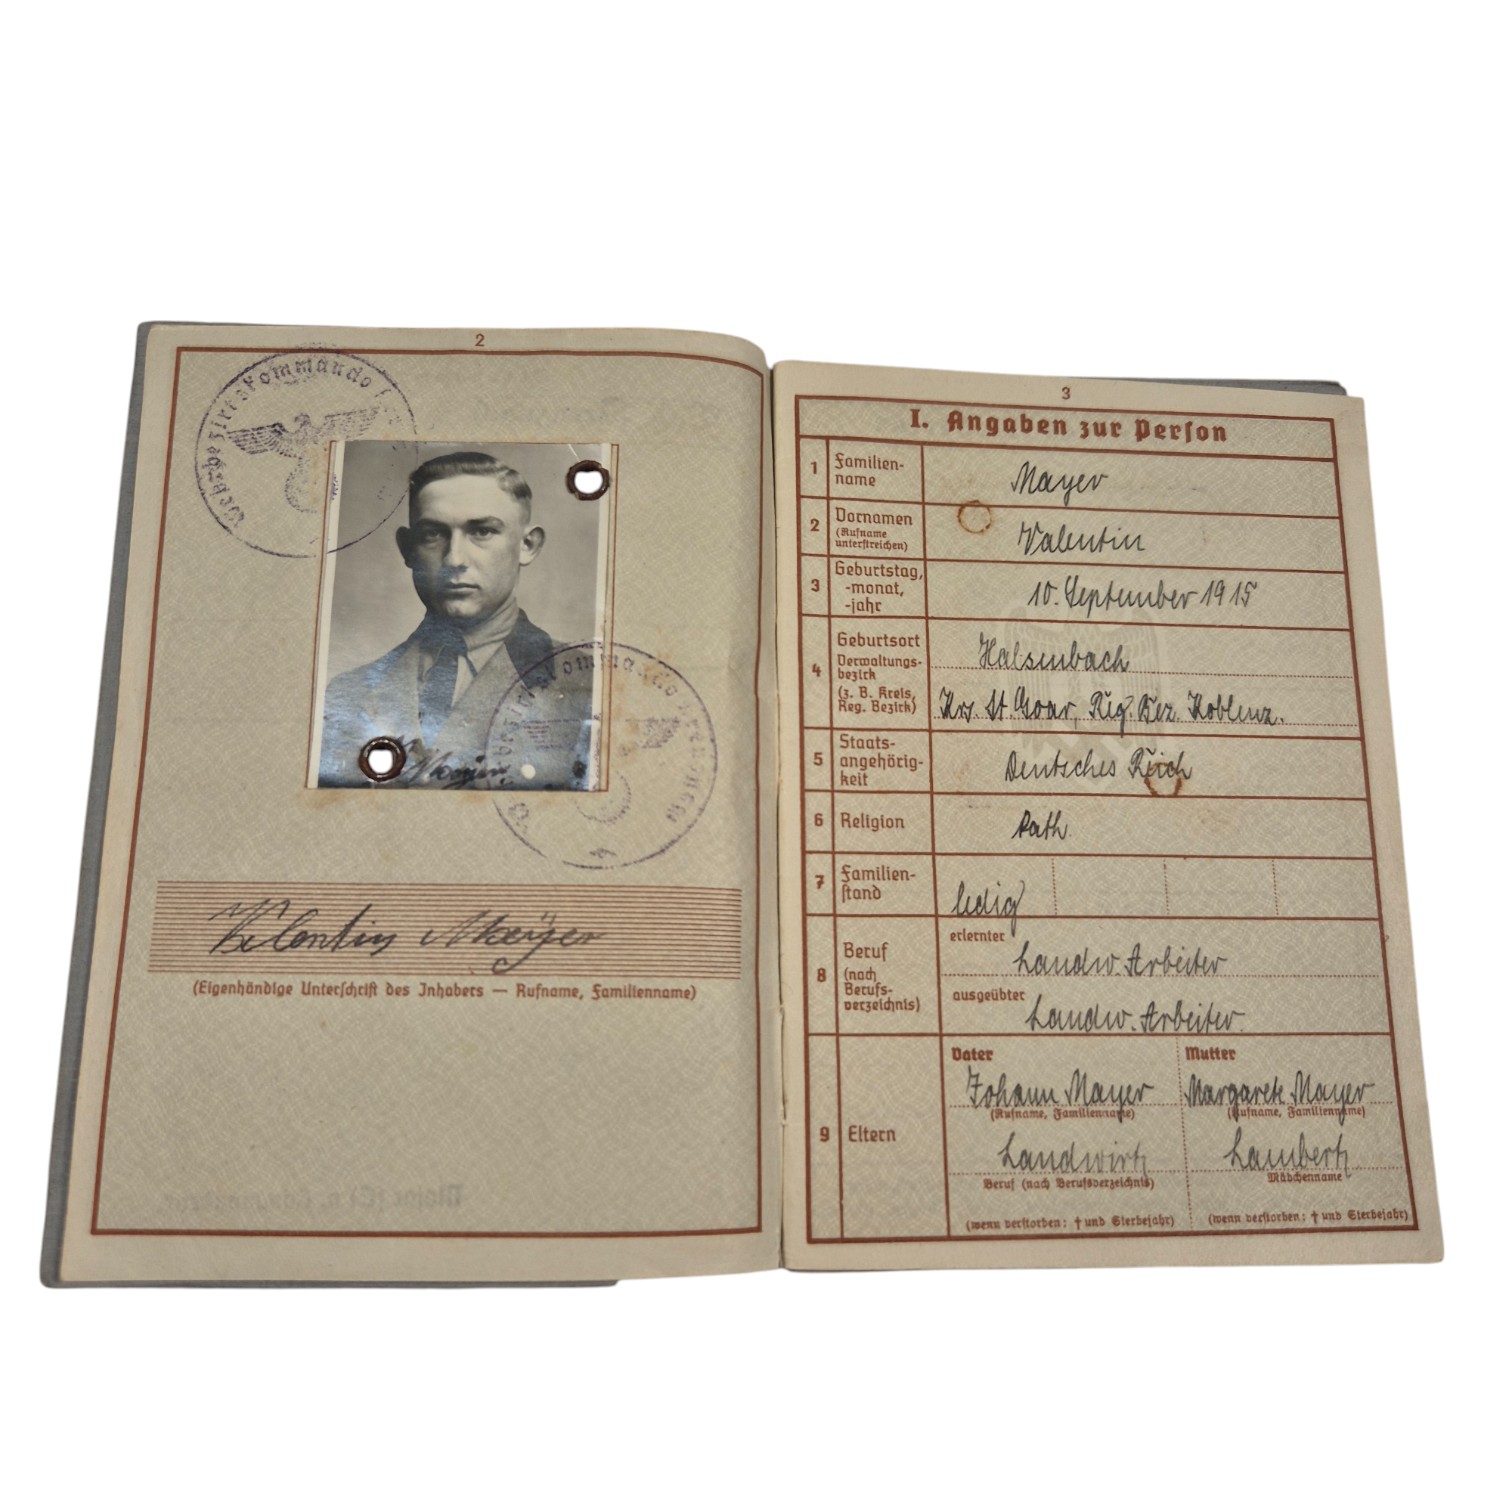 2
Wehrbezirkskommando
Mayer
Wehrbezirkskommando Kreuznach
Valentin Mayer
(Eigenhändige Unterschrift des Inhabers — Rufname, Familienname)
3
I. Angaben zur Person
1 Familien-
name
Mayer
2 Vornamen
(Rufname
unterstreichen)
Valentin
3 Geburtstag,
-monat,
-jahr
10. September 1915
4 Geburtsort
Halsenbach
Verwaltungs-
bezirk
(z. B. Kreis,
Reg. Bezirk)
Krs. St. Goar, Reg. Bez. Koblenz.
5 Staats-
angehörig-
keit
Deutsches Reich
6 Religion
kath.
7 Familien-
stand
ledig
8 Beruf
(nach
Berufs-
verzeichnis)
erlernter
Landw. Arbeiter
ausgeübter
Landw. Arbeiter.
9 Eltern
Vater
Johann Mayer
(Rufname, Familienname)
Landwirt
Beruf (nach Berufsverzeichnis)
(wenn verstorben: † und Sterbejahr)
Mutter
Margarete Mayer
(Rufname, Familienname)
Lambertz
Mädchenname
(wenn verstorben: † und Sterbejahr)